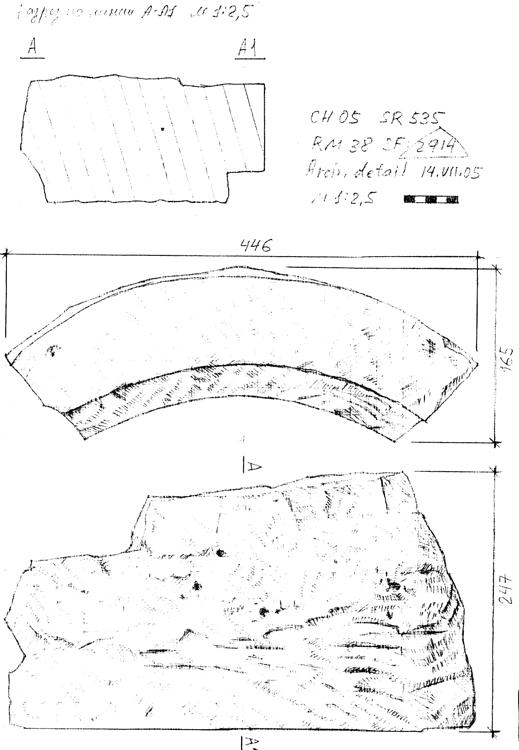 А-А1 М 1:2,5
А А1
CH 05 SR 535
RM 38 SF 2914
Arch. detail 14.VII.05
М 1:2,5
446
165
А
247
А1